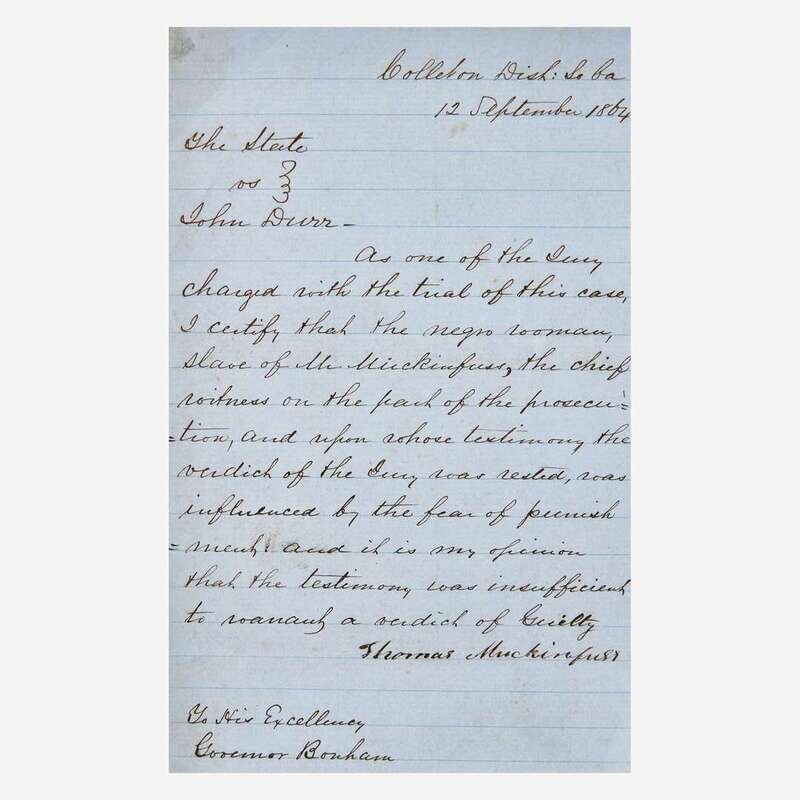 Colleton Dist: So Ca
12 September 1864
The State
vs
John Durr -
As one of the Jury
charged with the trial of this case,
I certify that the negro woman,
slave of Mr Muckinfuss, the chief
witness on the part of the prosecu=
=tion, and upon whose testimony the
verdict of the Jury was rested, was
influenced by the fear of punish
=ment: and it is my opinion
that the testimony was insufficient
to warrant a verdict of Guilty
Thomas Muckinfuss
To His Excellency
Governor Bonham